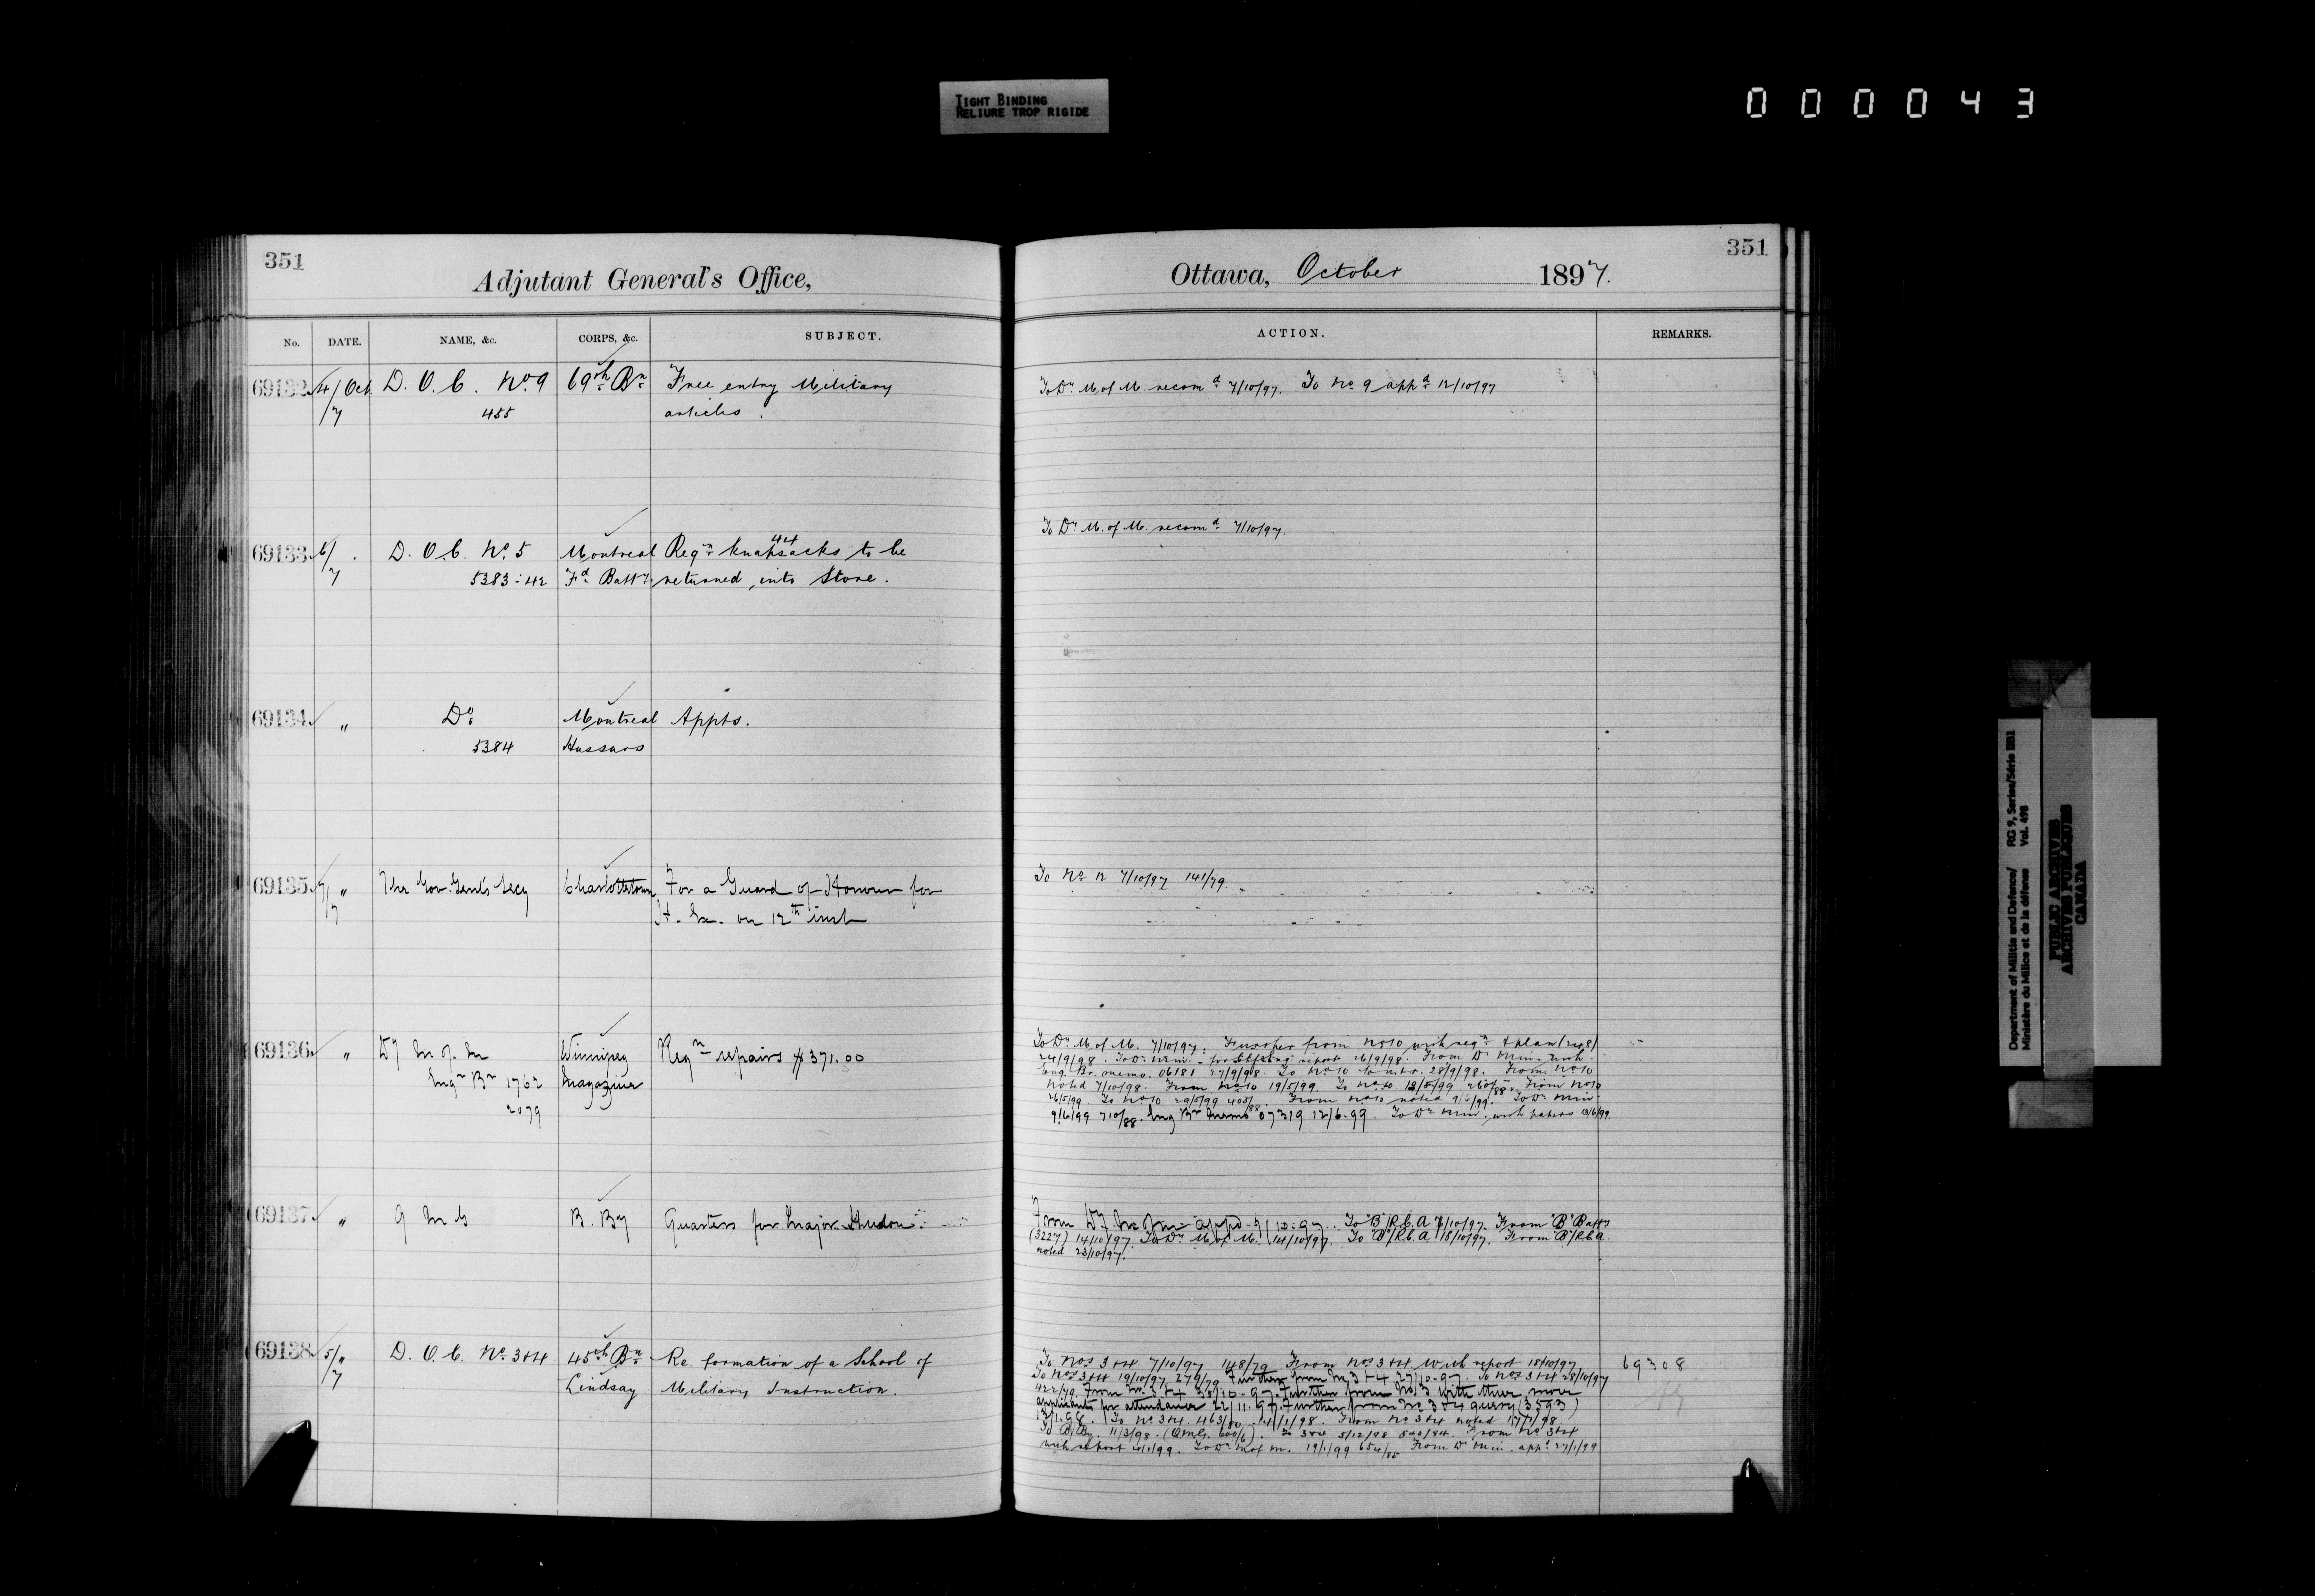 TIGHT BINDING
RELIURE TROP RIGIDE
000043
351
Adjutant General's Office,
No. DATE. NAME, &c. CORPS, &c. SUBJECT.
69132 4/Oct D. O. C. No 9 69th Bn Free entry Military
/7 455 articles.
69133 6/ . D. O. C. No 5 Montreal Reqn 44 knapsacks to be
/7 5383-42 Fd Batty returned into Store.
69134 " Do Montreal Appts.
5384 Hussars
69135 7/ " The Gov. Genl's Secy Charlottetown For a Guard of Honour for
/7 H. Ex. on 12th inst
69136 " Dy M of M Winnipeg Reqn repairs $371.00
Engr Br 1762 Magazine
2079
69137 " Q M G B. By Quarters for Major Hudon.
69138 5/ " D. O. C. No 3+4 45th Bn Re formation of a School of
/7 Lindsay Military Instruction.
351
Ottawa, October 1897.
ACTION. REMARKS.
To Dy M. of M. recomd 7/10/97. To No 9 appd 12/10/97
To Dy M. of M. recomd 7/10/97.
To No 12 7/10/97 141/79.
To Dy M of M. 7/10/97. Further from No 10 with reqn & plan
24/9/98. report 26/9/98. From Dy Min. with
Eng. Br. memo. 06181 27/9/98. To No 10 28/9/98. From No 10
noted 7/10/98. From No 10 19/5/99. To No 10 From No 10
26/5/99. To No 10 29/5/99 From No 10 noted 9/6/99. To Dy Min
9/6/99 710/88. Eng Br Memo 07319 12/6.99. To Dy Min. with papers 13/6/99
From Dy M of M appd 7/10.97. To "B"/R.C.A 7/10/97. From "B" Batty
(3227) 14/10/97. To Dy M. of M. 14/10/97. To "B"/R.C.A 18/10/97. From "B"/R.C.A.
noted 23/10/97.
To Nos 3+4 7/10/97 148/79 From Nos 3+4 with report 18/10/97 69308
To Nos 3+4 19/10/97 279/79 Further from No 3+4 27/10.97. To Nos 3+4 28/10/97
422/79. From No. 3+4 30/10.97. Further from No. 3 with three more
applicants for attendance 22/11.97. Further from No 3+4 query (3593)
To No 3+4. 463/80. 14/1/98. From No 3+4 noted 17/1/98.
11/3/98. To 3+4 5/12/98 From No 3+4
with report To Dy M of M. 19/1/99 654/85 From Dy Min. appd 27/1/99
Department of Militia and Defence/ RG 9, Series/Série IIB1
Ministère du Milice et de la défense Vol. 498
PUBLIC ARCHIVES
ARCHIVES PUBLIQUES
CANADA